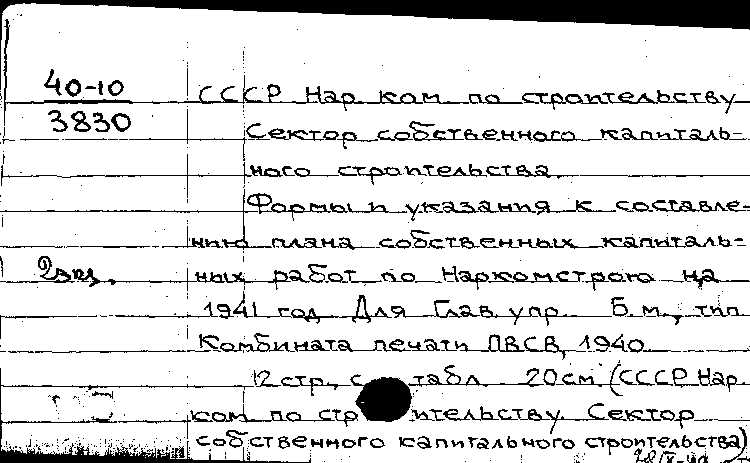 40-10
3830
СССР Нар. ком. по строительству
Сектор собственного капиталь-
ного строительства.
Формы и указания к составле-
нию плана собственных капиталь-
2 экз.
ных работ по Наркомстрою на
1941 год Для Глав. упр. Б. м., тип.
Комбината печати ПВСВ, 1940
12 стр., с табл. 20 см. (СССР Нар.
ком. по строительству. Сектор
собственного капитального строительства)